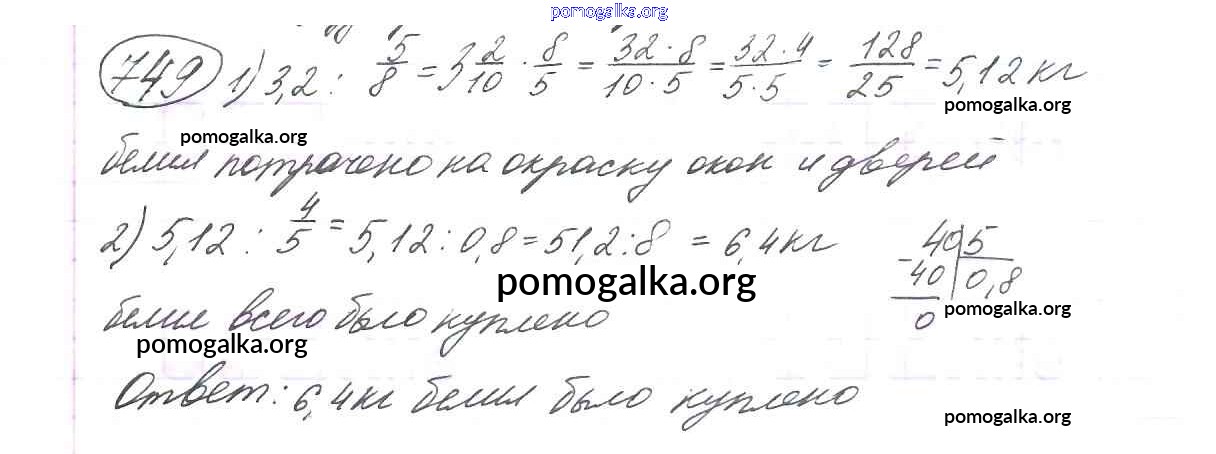 pomogalka.org
749 1) 3,2 : 5/8 = 3 2/10 · 8/5 = 32·8/10·5 = 32·4/5·5 = 128/25 = 5,12 кг
pomogalka.org
pomogalka.org
белил потрачено на окраску окон и дверей
2) 5,12 : 4/5 = 5,12 : 0,8 = 51,2 : 8 = 6,4 кг
40 5
- 40 0,8
0
pomogalka.org
белил всего было куплено
pomogalka.org
pomogalka.org
Ответ: 6,4 кг белил было куплено
pomogalka.org